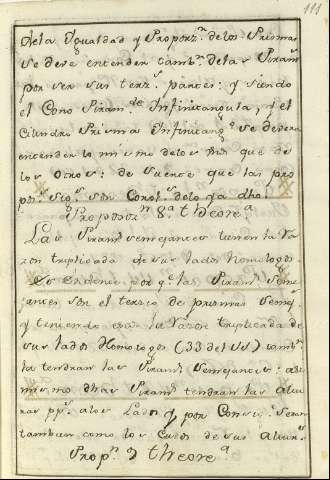 111
de la Igualdad y Proporz.n de los Prismas
se deve entender tamb.n de las Piram.s
por ser sus terz.s partes: y siendo
el Cono Piram.de Infinitangula, y el
Cilindro Prisma Infinitang.o se devera
entender lo mismo de los Unos que de
los Otros: de suerte que las pro
pos.s sig.s son Corol.s de lo ya dho.
Propposiz.n 8.a theore.a
Las Piram.s semejantes tienen la Ra
zon triplicada de sus lados Homologos.
Es evidente por q.e las Piram.s seme
jantes son el tercio de prismas Semej.s
y teniendo estas la Razon triplicada de
sus lados Homologos (33 del 11) tamb.n
la tendran las Piram.s semejantes: asi
mismo dhas Piram.s tendran las Altu
ras pp.s a los Lados y por Consig.te seran
tambien como los Cubos de sus Alturas
Prop.n 9 theore.a